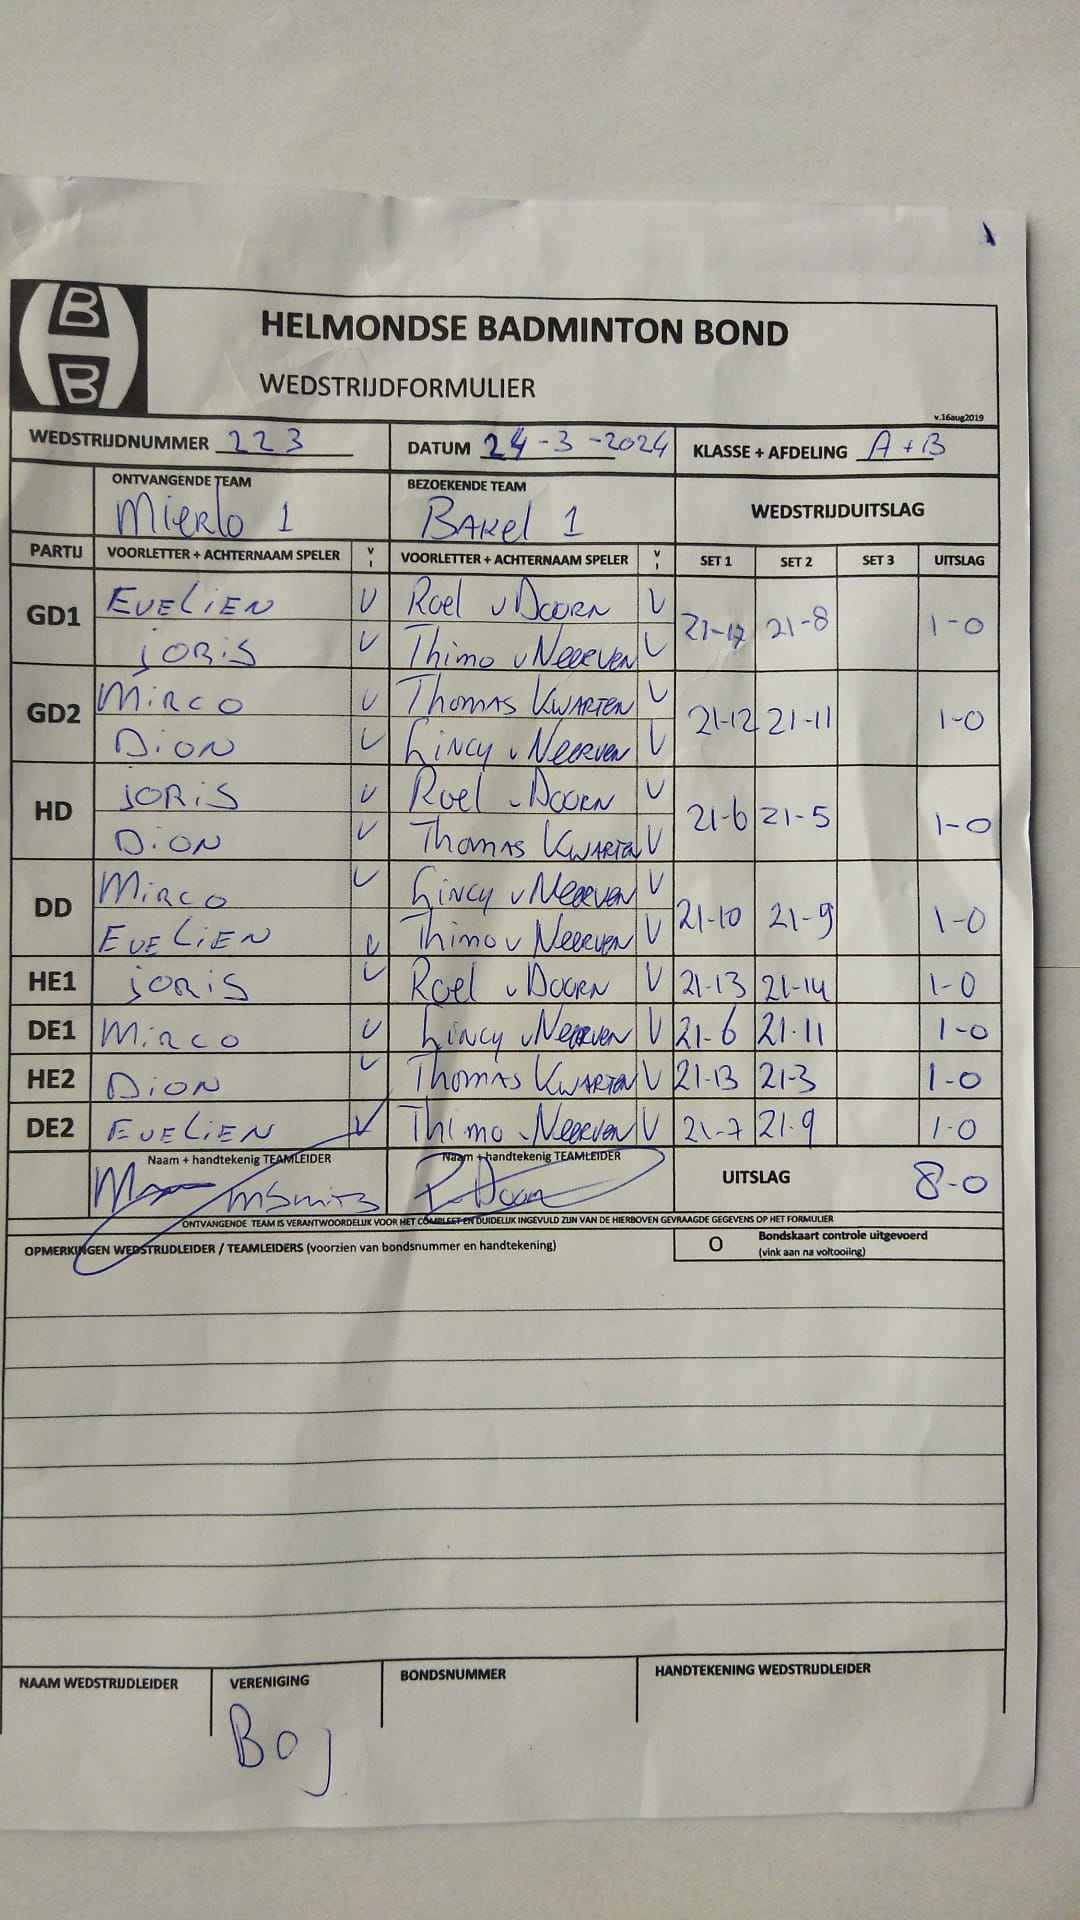 B
B
HELMONDSE BADMINTON BOND
WEDSTRIJDFORMULIER
v.16aug2019
WEDSTRIJDNUMMER 223 DATUM 24-3-2024 KLASSE + AFDELING A+B
ONTVANGENDE TEAM BEZOEKENDE TEAM WEDSTRIJDUITSLAG
Mierlo 1 BAKel 1
PARTIJ VOORLETTER + ACHTERNAAM SPELER V I VOORLETTER + ACHTERNAAM SPELER V I SET 1 SET 2 SET 3 UITSLAG
GD1 EVELIEN V Roel v DOORN V 21-12 21-8 1-0
JORIS V Thimo v NEERVEN V
GD2 MIRCO V Thomas KWARTEN V 21-12 21-11 1-0
DION V Lincy v NEERVEN V
HD JORIS V Roel v DOORN V 21-6 21-5 1-0
DION V Thomas KWARTEN V
DD MIRCO V Lincy v NEERVEN V 21-10 21-9 1-0
EVELIEN V Thimo v NEERVEN V
HE1 JORIS V Roel v DOORN V 21-13 21-14 1-0
DE1 MIRCO V Lincy v NEERVEN V 21-6 21-11 1-0
HE2 DION V Thomas KWARTEN V 21-13 21-3 1-0
DE2 EVELIEN V Thimo v NEERVEN V 21-7 21-9 1-0
Naam + handtekenig TEAMLEIDER Naam + handtekenig TEAMLEIDER UITSLAG 8-0
R Doorn
ONTVANGENDE TEAM IS VERANTWOORDELIJK VOOR HET COMPLEET EN DUIDELIJK INGEVULD ZIJN VAN DE HIERBOVEN GEVRAAGDE GEGEVENS OP HET FORMULIER
OPMERKINGEN WEDSTRIJDLEIDER / TEAMLEIDERS (voorzien van bondsnummer en handtekening) O Bondskaart controle uitgevoerd
(vink aan na voltooiing)
NAAM WEDSTRIJDLEIDER VERENIGING BONDSNUMMER HANDTEKENING WEDSTRIJDLEIDER
BOJ